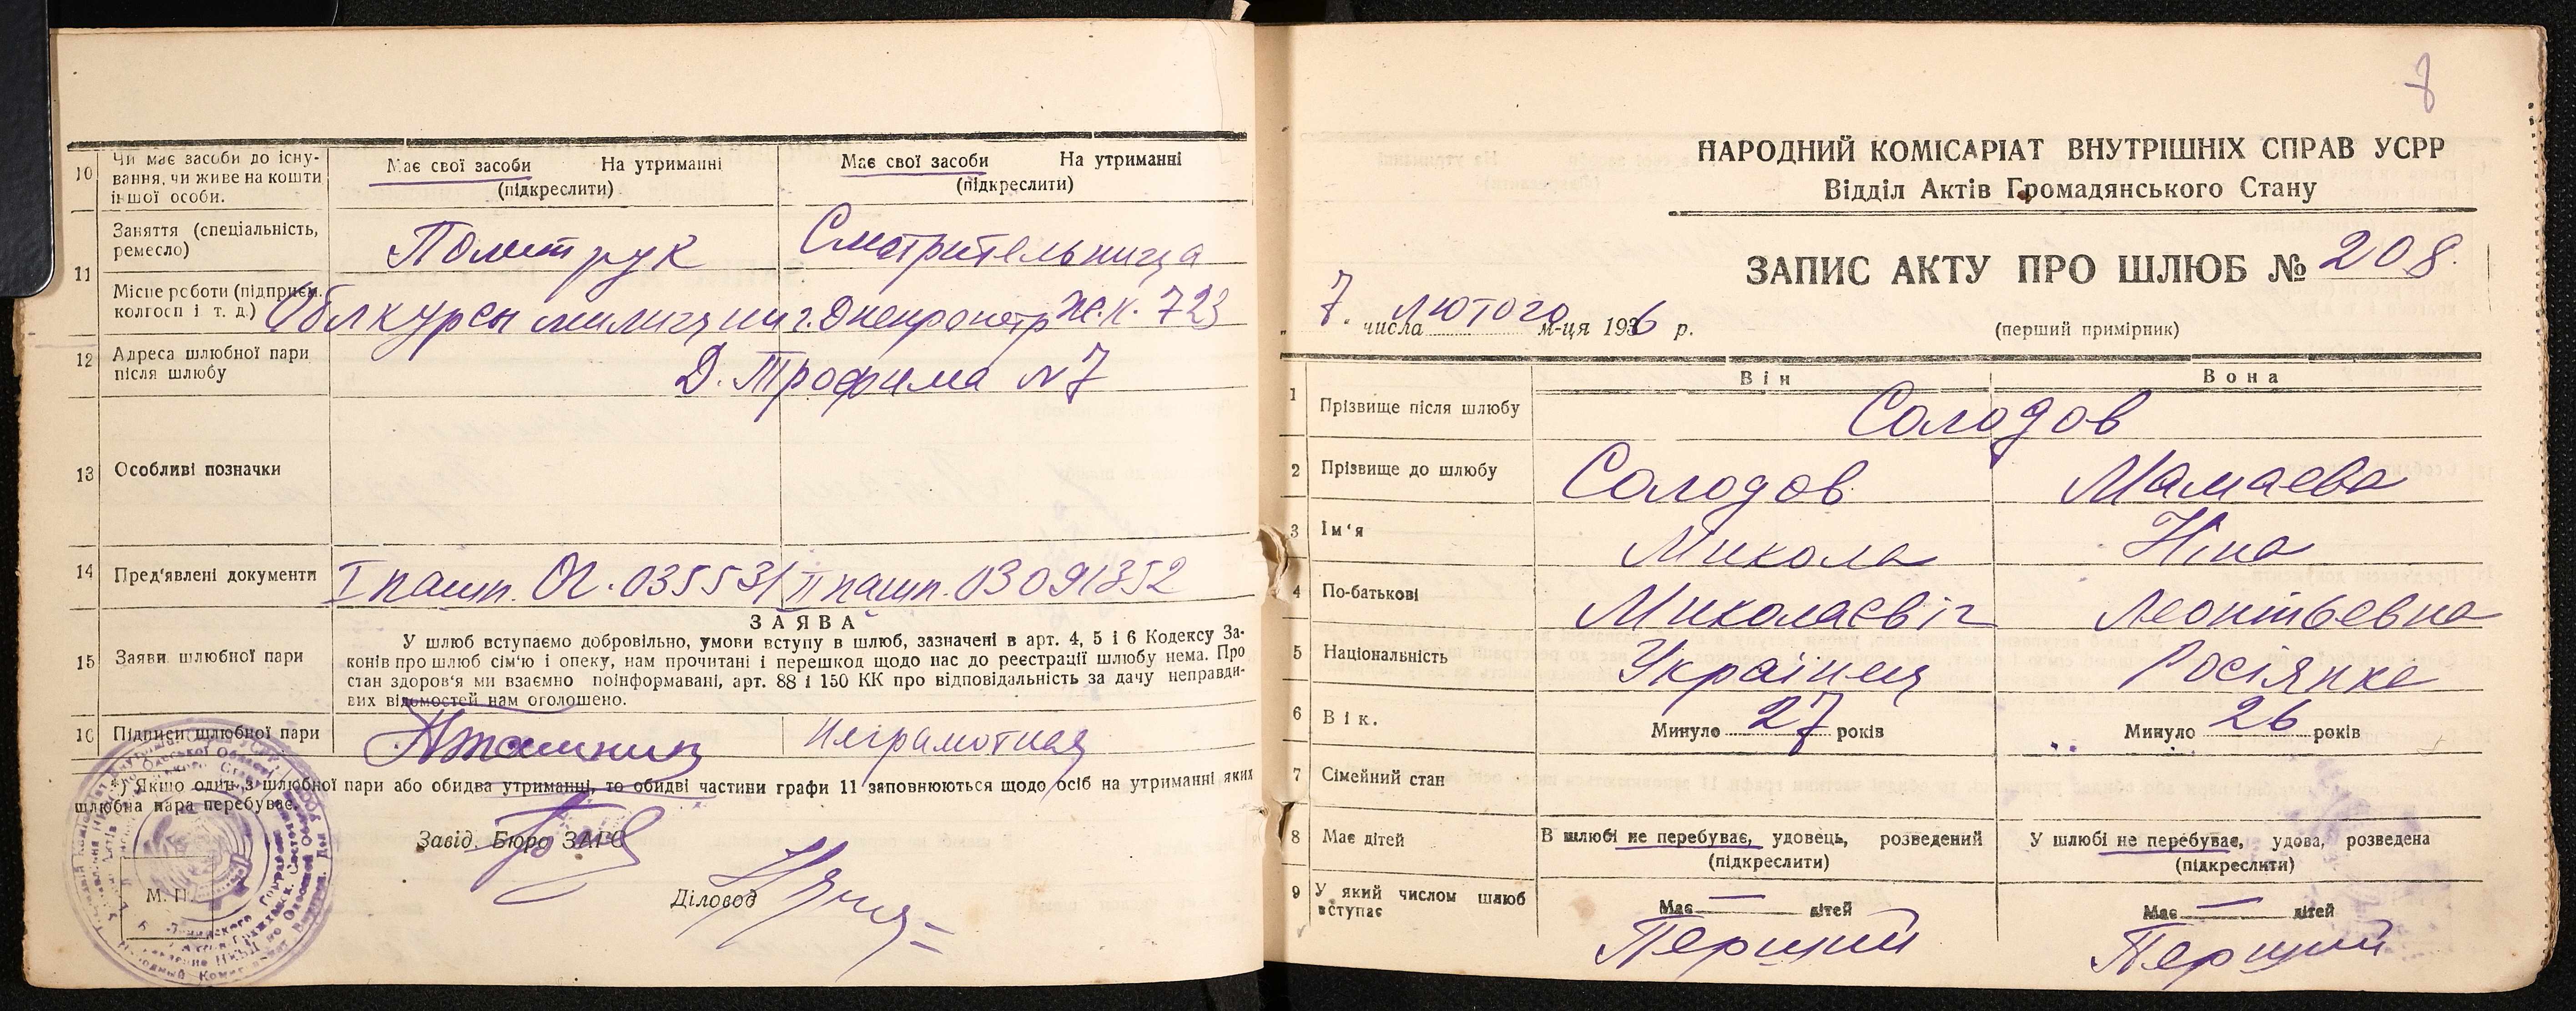 10 Чи має засоби до існу-
вання, чи живе на кошти
іншої особи.
Має свої засоби На утриманні
(підкреслити)
Має свої засоби На утриманні
(підкреслити)
11 Заняття (спеціальність,
ремесло)
Политрук
Смотрительница
Місце роботи (підприєм.
колгосп і т. д.)
Облкурсы милиции г. Днепропетр
Ж.К. 723
12 Адреса шлюбної пари
після шлюбу
Д. Трофима N 7
13 Особливі позначки
14 Пред'явлені документи
I пашп. 035531 II пашп. 03091352
15 Заяви шлюбної пари
ЗАЯВА
У шлюб вступаємо добровільно, умови вступу в шлюб, зазначені в арт. 4, 5 і 6 Кодексу За-
конів про шлюб сім'ю і опеку, нам прочитані і перешкод щодо нас до реєстрації шлюбу нема. Про
стан здоров'я ми взаємно поінформавані, арт. 88 і 150 КК про відповідальність за дачу неправди-
вих відомостей нам оголошено.
16 Підписи шлюбної пари
Неграмотная
*) Якшо один з шлюбної пари або обидва утриманні, то обидві частини графи 11 заповнюються щодо осіб на утриманні яких
шлюбна пара перебуває.
Завід. Бюро ЗАГС
М. П.
Діловод
8
НАРОДНИЙ КОМІСАРІАТ ВНУТРІШНІХ СПРАВ УСРР
Відділ Актів Громадянського Стану
ЗАПИС АКТУ ПРО ШЛЮБ № 208.
„ 7. числа лютого м-ця 1936 р.
(перший примірник)
Він Вона
1 Прізвище після шлюбу Солодов
2 Прізвище до шлюбу Солодов Мамаева
3 Ім'я Микола Ніна
4 По-батькові Миколаєвіч Леонтьевна
5 Національність Українец Росіянка
6 Вік. Минуло 27 років Минуло 26 років
7 Сімейний стан
8 Має дітей
В шлюбі не перебуває, удовець, розведений
(підкреслити)
У шлюбі не перебуває, удова, розведена
(підкреслити)
9 У який числом шлюб
вступає
Має — дітей Має — дітей
Перший Перший